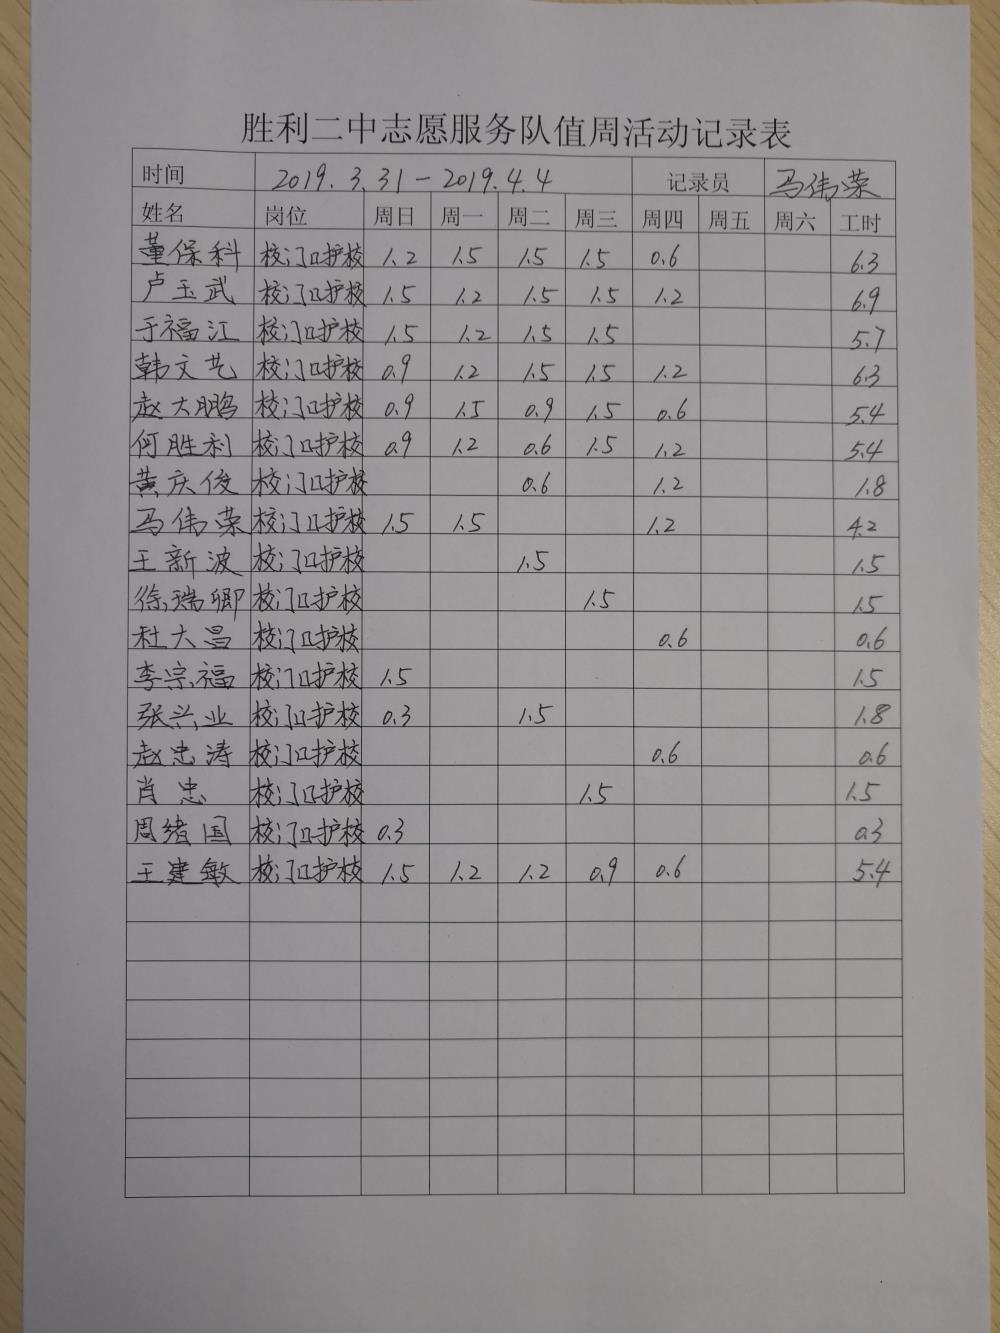 胜利二中志愿服务队值周活动记录表
时间 2019.3.31-2019.4.4 记录员 马伟荣
姓名 岗位 周日 周一 周二 周三 周四 周五 周六 工时
董保科 校门口护校 1.2 1.5 1.5 1.5 0.6 6.3
卢玉武 校门口护校 1.5 1.2 1.5 1.5 1.2 6.9
于福江 校门口护校 1.5 1.2 1.5 1.5 5.7
韩文艺 校门口护校 0.9 1.2 1.5 1.5 1.2 6.3
赵大鹏 校门口护校 0.9 1.5 0.9 1.5 0.6 5.4
何胜利 校门口护校 0.9 1.2 0.6 1.5 1.2 5.4
黄庆俊 校门口护校 0.6 1.2 1.8
马伟荣 校门口护校 1.5 1.5 1.2 4.2
王新波 校门口护校 1.5 1.5
徐瑞卿 校门口护校 1.5 1.5
杜大昌 校门口护校 0.6 0.6
李宗福 校门口护校 1.5 1.5
张兴业 校门口护校 0.3 1.5 1.8
赵忠涛 校门口护校 0.6 0.6
肖忠 校门口护校 1.5 1.5
周绪国 校门口护校 0.3 0.3
王建敏 校门口护校 1.5 1.2 1.2 0.9 0.6 5.4